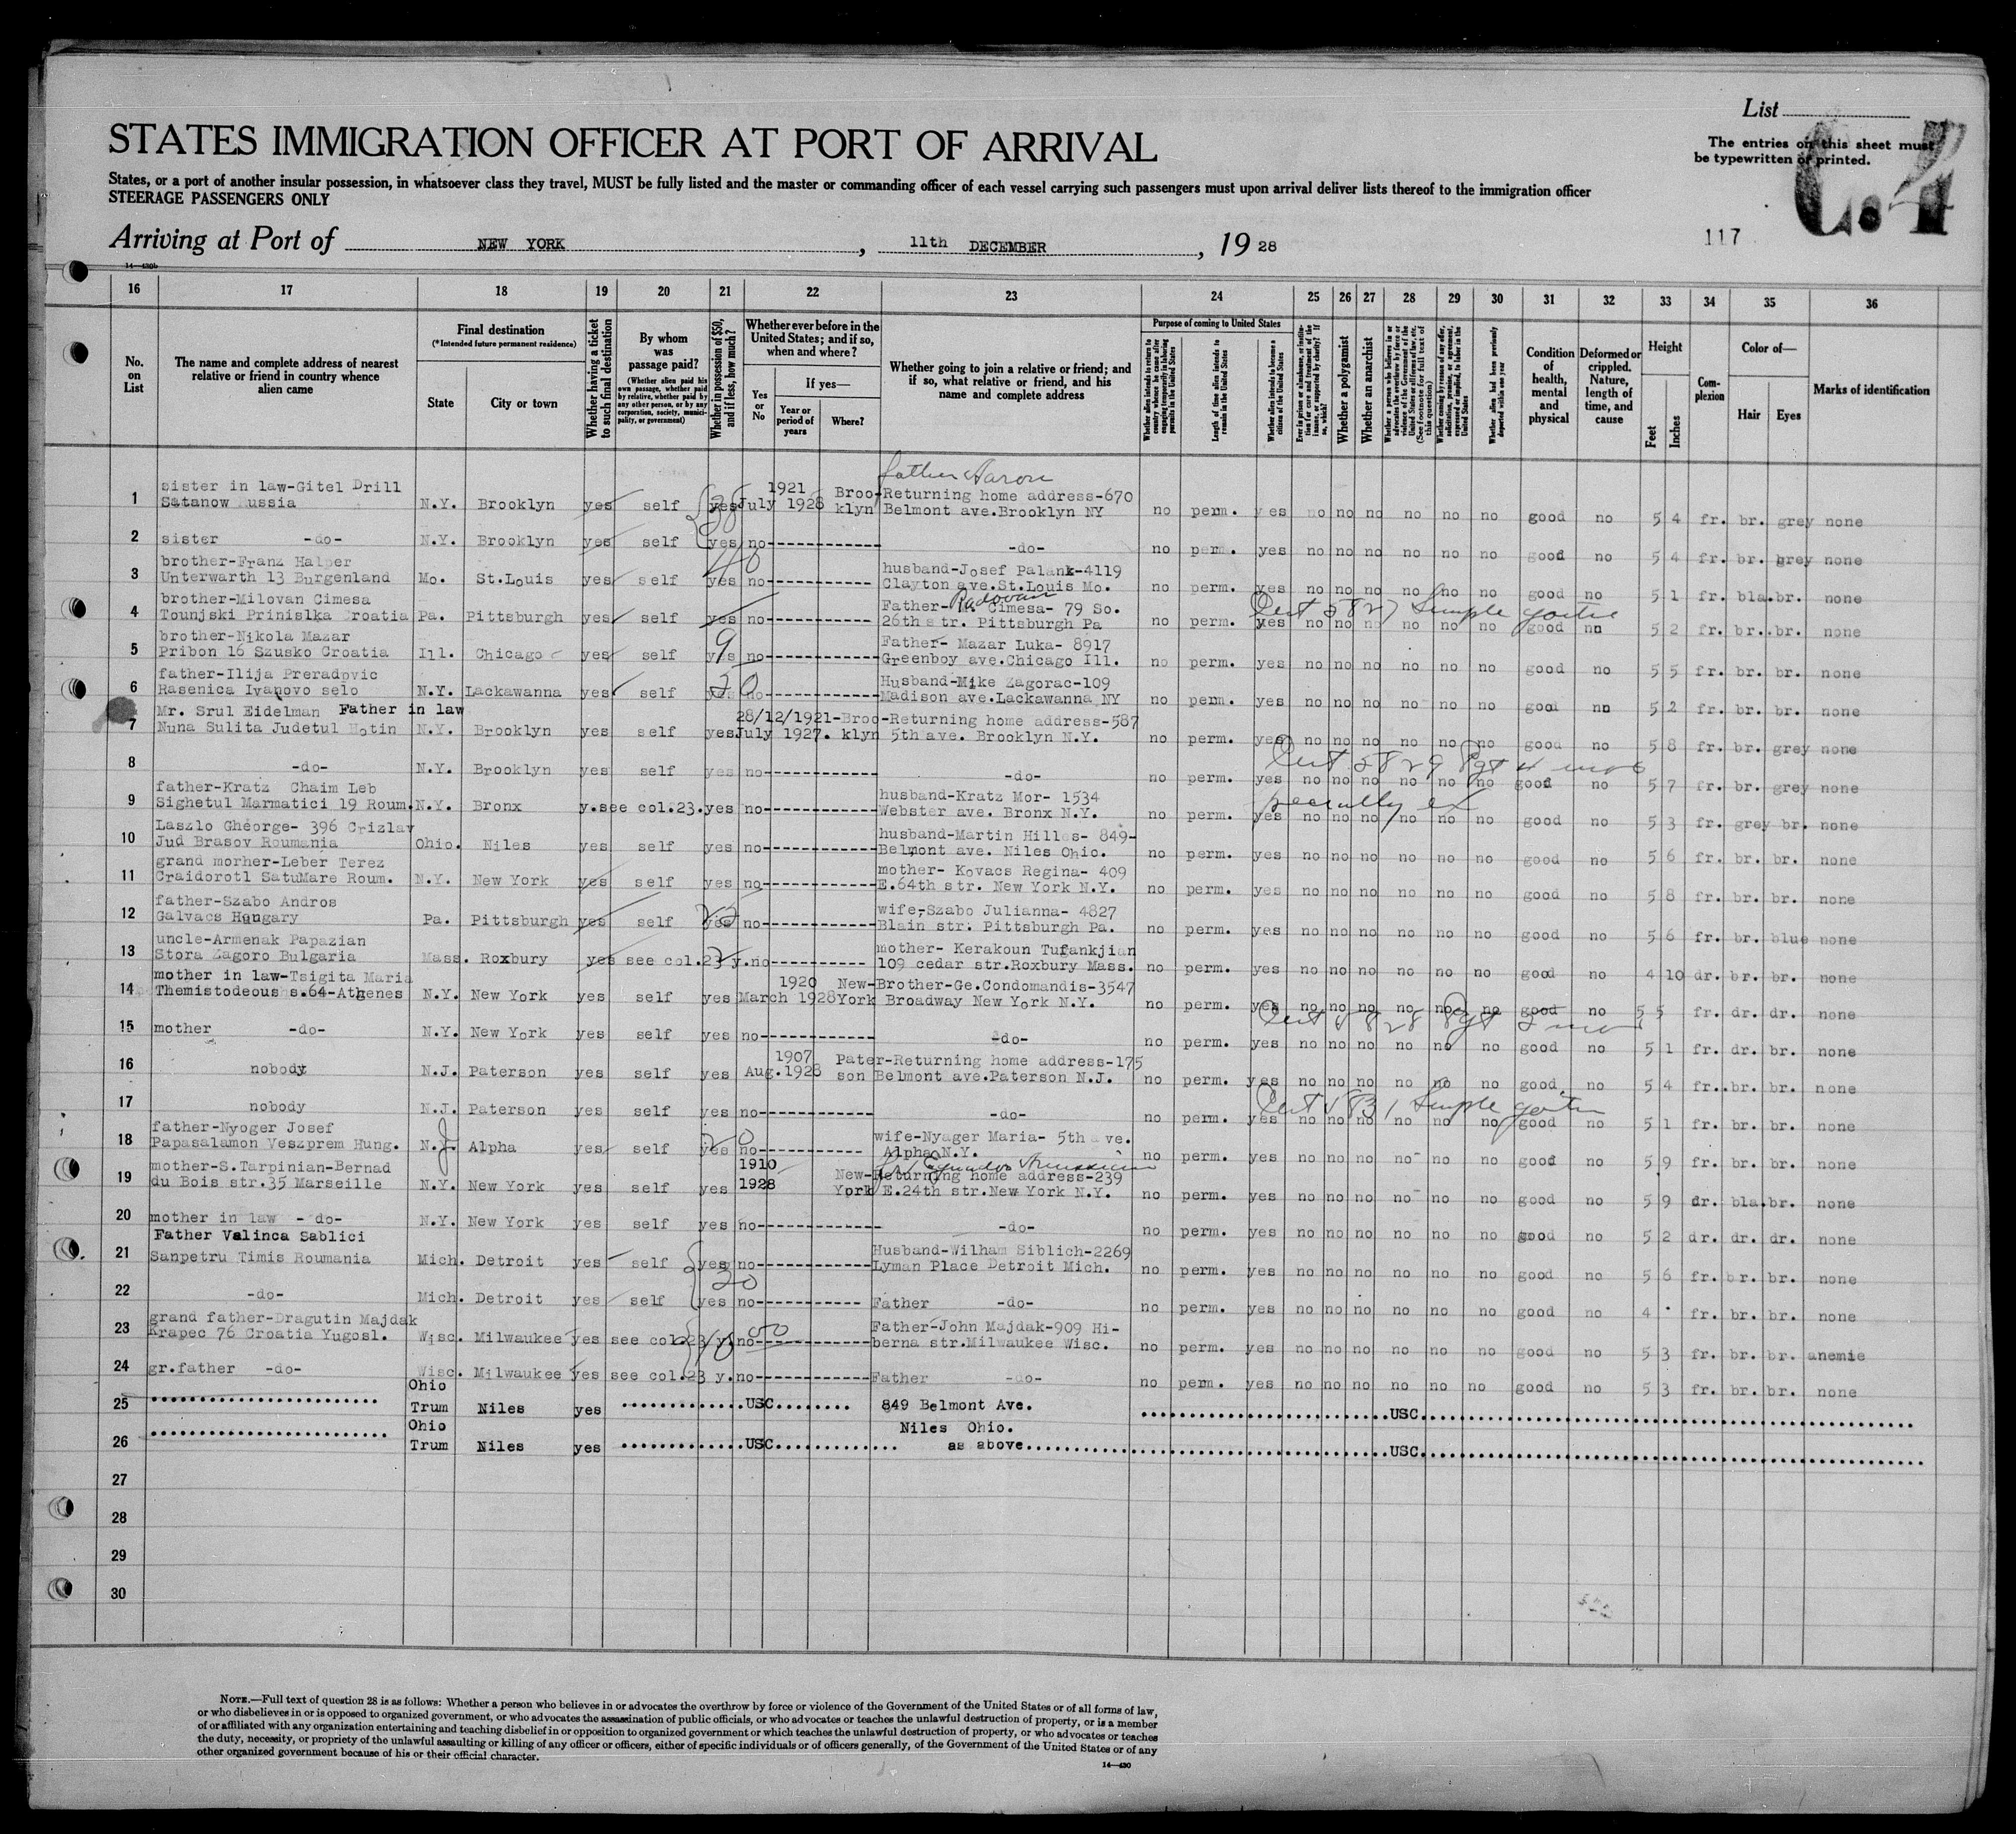 List
The entries on this sheet must
be typewritten or printed.
C.4
STATES IMMIGRATION OFFICER AT PORT OF ARRIVAL
States, or a port of another insular possession, in whatsoever class they travel, MUST be fully listed and the master or commanding officer of each vessel carrying such passengers must upon arrival deliver lists thereof to the immigration officer
STEERAGE PASSENGERS ONLY
Arriving at Port of NEW YORK, 11th DECEMBER, 19 28
117
14—430b
16 17 18 19 20 21 22 23 24 25 26 27 28 29 30 31 32 33 34 35 36
No. on List
The name and complete address of nearest relative or friend in country whence alien came
Final destination
(*Intended future permanent residence)
State
City or town
Whether having a ticket to such final destination
By whom was passage paid?
(Whether alien paid his own passage, whether paid by relative, whether paid by any other person, or by any corporation, society, municipality, or government)
Whether in possession of $50, and if less, how much?
Whether ever before in the United States; and if so, when and where?
Yes or No
If yes—
Year or period of years
Where?
Whether going to join a relative or friend; and if so, what relative or friend, and his name and complete address
Purpose of coming to United States
Whether alien intends to return to country whence he came after engaging temporarily in laboring pursuits in the United States
Length of time alien intends to remain in the United States
Whether alien intends to become a citizen of the United States
Whether a polygamist
Whether an anarchist
(See footnote for full text of this question)
Whether alien had been previously deported within one year
Condition of health, mental and physical
Deformed or crippled. Nature, length of time, and cause
Height
Feet
Inches
Complexion
Color of—
Hair
Eyes
Marks of identification
father Aaron
sister in law-Gitel Drill 1921
1 Satanow ussia N.Y. Brooklyn yes self yes July 1928 Brooklyn Returning home address-670 Belmont ave.Brooklyn NY no perm. yes no no no no no no good no 5 4 fr. br. grey none
2 sister -do- N.Y. Brooklyn yes self yes no -do- no perm. yes no no no no no no good no 5 4 fr. br. grey none
brother-Franz Halper husband-Josef Palank-4119
3 Unterwarth 13 Burgenland Mo. St.Louis yes self yes no Clayton ave.St.Louis Mo. no perm. yes no no no no no no good no 5 1 fr. bla.br. none
brother-Milovan Cimesa Father- Radovan Cimesa- 79 So. Cert 5827 Simple goitre
4 Tounjski Prinislka roatia Pa. Pittsburgh yes self yes no 26th str. Pittsburgh Pa no perm. yes no no no no no no good no 5 2 fr. br. br. none
brother-Nikola Mazar Father- Mazar Luka- 8917
5 Pribon 16 Szusko Croatia Ill. Chicago yes self yes 9 no Greenboy ave.Chicago Ill. no perm. yes no no no no no no good no 5 5 fr. br. br. none
father-Ilija Preradovic Husband-Mike Zagorac-109
6 Rasenica Ivanovo selo N.Y. Lackawanna yes self yes 20 no Madison ave.Lackawanna NY no perm. yes no no no no no no good no 5 2 fr. br. br. none
Mr. Srul Eidelman Father in law 28/12/1921-Broo-Returning home address-587
7 Nuna Sulita Judetul Hotin N.Y. Brooklyn yes self yes July 1927. klyn 5th ave. Brooklyn N.Y. no perm. yes no no no no no no good no 5 8 fr. br. grey none
Cert 5829 Pgt 4 mos
8 -do- N.Y. Brooklyn yes self yes no -do- no perm. yes no no no no no no good no 5 7 fr. br. grey none
father-Kratz Chaim Leb husband-Kratz Mor- 1534
9 Sighetul Marmatici 19 Roum. N.Y. Bronx y.see col.23.yes no Webster ave. Bronx N.Y. no perm. yes no no no no no no good no 5 3 fr. grey br. none
Laszlo Gheorge- 396 Crizlav husband-Martin Hilles- 849-
10 Jud Brasov Roumania Ohio. Niles yes self yes no Belmont ave. Niles Ohio. no perm. yes no no no no no no good no 5 6 fr. br. br. none
grand morher-Leber Terez mother- Kovacs Regina- 409
11 Craidorotl SatuMare Roum. N.Y. New York yes self yes no E.64th str. New York N.Y. no perm. yes no no no no no no good no 5 8 fr. br. br. none
father-Szabo Andros wife-Szabo Julianna- 4827
12 Galvacs Hungary Pa. Pittsburgh yes self yes no Blain str. Pittsburgh Pa. no perm. yes no no no no no no good no 5 6 fr. br. blue none
uncle-Armenak Papazian mother- Kerakoun Tufankjian
13 Stora Zagoro Bulgaria Mass. Roxbury yes see col.23 y.no 109 cedar str.Roxbury Mass. no perm. yes no no no no no no good no 4 10 dr. br. br. none
mother in law-Tsigita Maria 1920 New-Brother-Ge.Condomandis-3547
14 Themistodeous s.64-Athenes N.Y. New York yes self yes March 1928 York Broadway New York N.Y. no perm. yes no no no no no no good no 5 5 fr. dr. dr. none
Cert 5828 Pgt 2 mos
15 mother -do- N.Y. New York yes self yes no -do- no perm. yes no no no no no no good no 5 1 fr. dr. br. none
1907 Pater-Returning home address-175
16 nobody N.J. Paterson yes self yes Aug.1928 son Belmont ave.Paterson N.J. no perm. yes no no no no no no good no 5 4 fr. br. br. none
Cert 5831 Simple goitre
17 nobody N.J. Paterson yes self yes no -do- no perm. yes no no no no no no good no 5 1 fr. br. br. none
father-Nyoger Josef wife-Nyager Maria- 5th ave.
18 Papasalamon Veszprem Hung. N.J. Alpha yes self yes 20 no Alpha N.Y. no perm. yes no no no no no no good no 5 9 fr. br. br. none
mother-S.Tarpinian-Bernad 1910 New-Returning home address-239
19 du Bois str.35 Marseille N.Y. New York yes self yes 1928 York E.24th str.New York N.Y. no perm. yes no no no no no no good no 5 9 dr. bla.br. none
20 mother in law - do- N.Y. New York yes self yes no -do- no perm. yes no no no no no no good no 5 2 dr. dr. dr. none
Father Valinca Sablici Husband-Wilham Siblich-2269
21 Sanpetru Timis Roumania Mich. Detroit yes self yes no Lyman Place Detroit Mich. no perm. yes no no no no no no good no 5 6 fr. br. br. none
30
22 -do- Mich. Detroit yes self yes no Father -do- no perm. yes no no no no no no good no 4 fr. br. br. none
grand father-Dragutin Majdak Father-John Majdak-909 Hi-
23 Krapec 76 Croatia Yugosl. Wisc. Milwaukee yes see col.23 y.no berna str.Milwaukee Wisc. no perm. yes no no no no no no good no 5 3 fr. br. br. anemie
24 gr.father -do- Wisc. Milwaukee yes see col.23 y.no Father -do- no perm. yes no no no no no no good no 5 3 fr. br. br. none
Ohio
25 Trum Niles yes USC 849 Belmont Ave. USC
Ohio Niles Ohio.
26 Trum Niles yes USC as above USC
27
28
29
30
NOTE.—Full text of question 28 is as follows: Whether a person who believes in or advocates the overthrow by force or violence of the Government of the United States or of all forms of law,
or who disbelieves in or is opposed to organized government, or who advocates the assassination of public officials, or who advocates or teaches the unlawful destruction of property, or is a member
of or affiliated with any organization entertaining and teaching disbelief in or opposition to organized government or which teaches the unlawful destruction of property, or who advocates or teaches
the duty, necessity, or propriety of the unlawful assaulting or killing of any officer or officers, either of specific individuals or of officers generally, of the Government of the United States or of any
other organized government because of his or their official character.
14—430